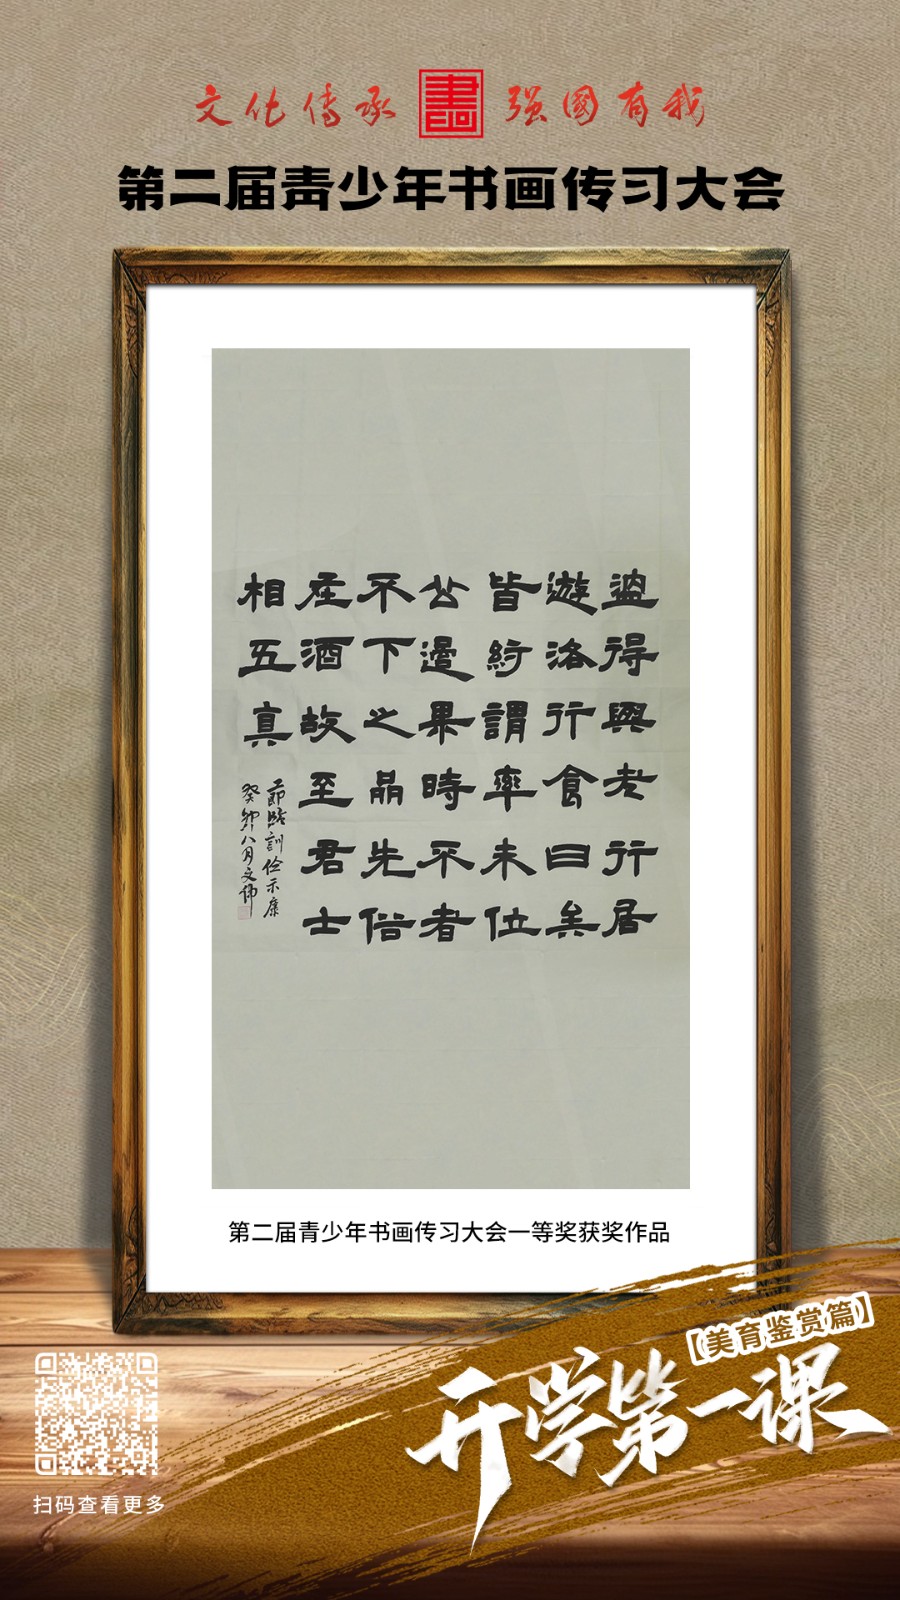 文化传承 書画 强國有我
第二届青少年书画传习大会
得與老行居
遊洛行食曰矣
皆紵謂率未位
公邊果時不者
不下之品先俗
在酒故至君士
相五真
節臨訓俭示康
癸卯八月文
第二届青少年书画传习大会一等奖获奖作品
【美育鉴赏篇】
开学第一课
扫码查看更多